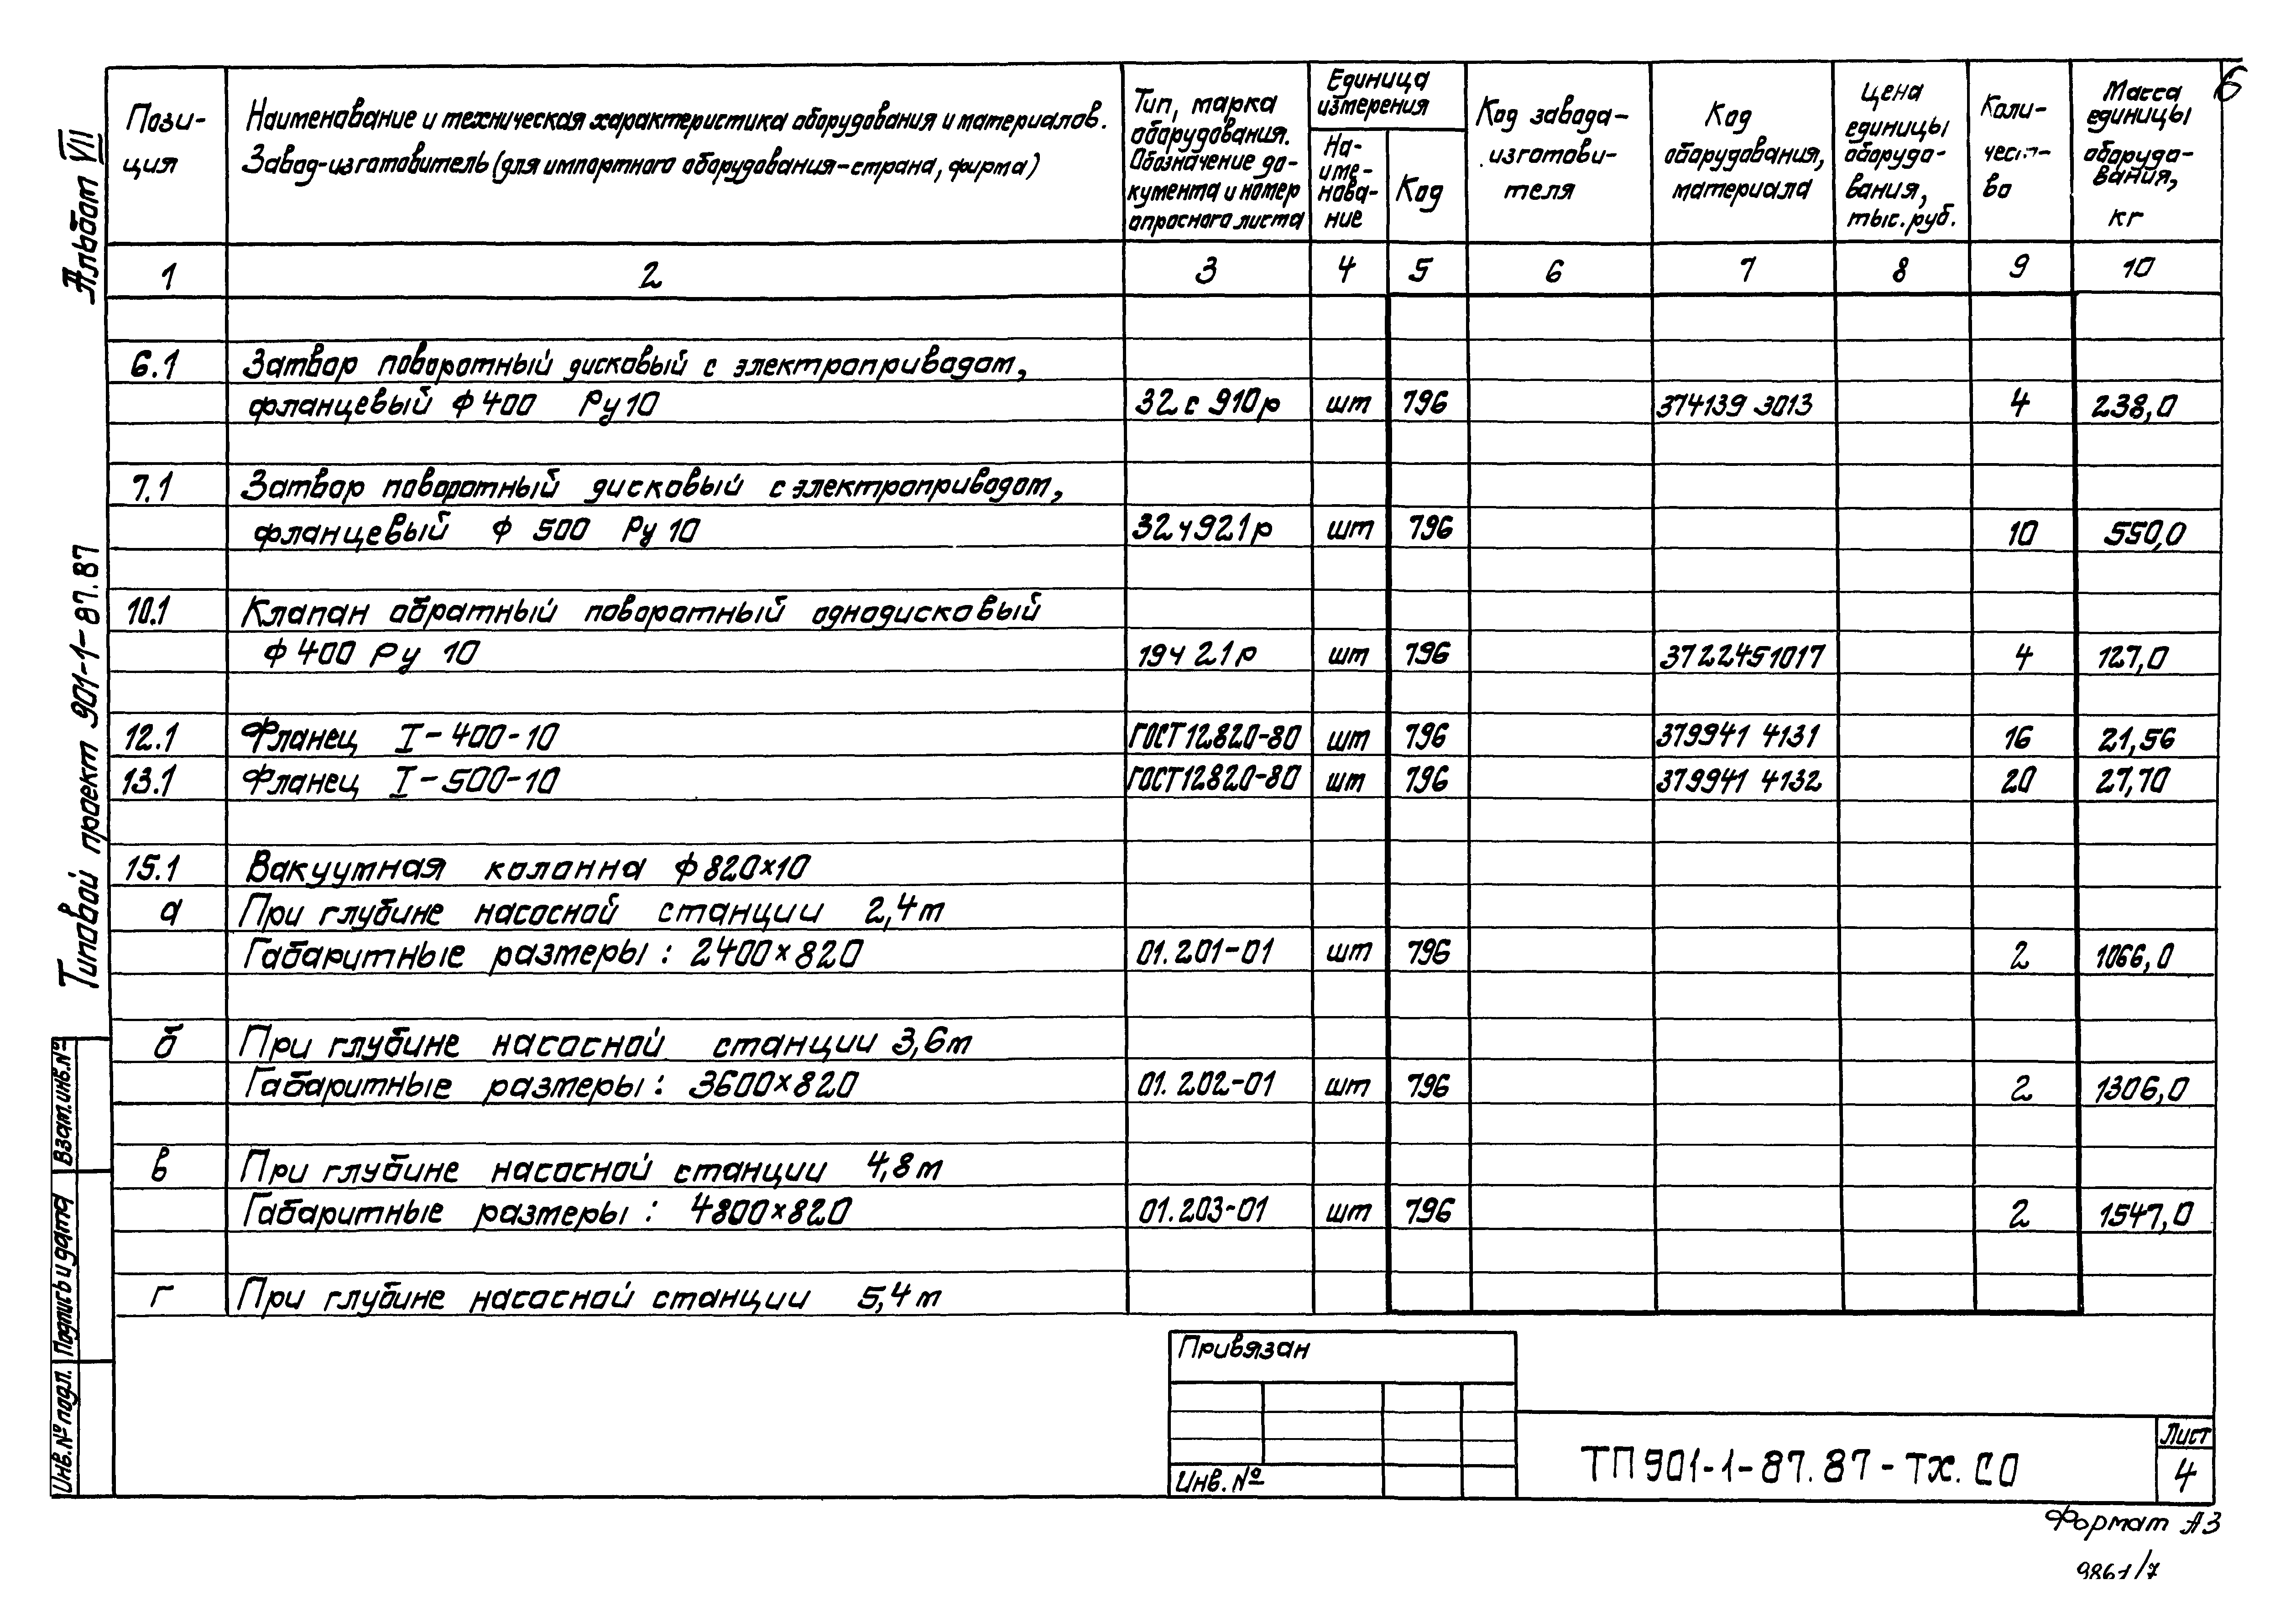 6
Альбом VII
Типовой проект 901-1-87.87
Взам.инв.№
Подпись и дата
Инв.№ подл.
Пози-
ция
Наименование и техническая характеристика оборудования и материалов.
Завод-изготовитель (для импортного оборудования-страна, фирма)
Тип, марка
оборудования.
Обозначение до-
кумента и номер
опросного листа
Единица
измерения
На-
име-
нова-
ние
Код
Код завода-
изготови-
теля
Код
оборудования,
материала
Цена
единицы
оборудо-
вания,
тыс. руб.
Коли-
чест-
во
Масса
единицы
оборудо-
вания,
кг
1 2 3 4 5 6 7 8 9 10
6.1 Затвор поворотный дисковый с электроприводом,
фланцевый ф 400 Ру 10 32 с 910р шт 796 374139 3013 4 238,0
7.1 Затвор поворотный дисковый с электроприводом,
фланцевый ф 500 Ру 10 32ч921р шт 796 10 550,0
10.1 Клапан обратный поворотный однодисковый
ф 400 Ру 10 19ч 21р шт 796 3722451017 4 127,0
12.1 Фланец I-400-10 ГОСТ12820-80 шт 796 379941 4131 16 21,56
13.1 Фланец I-500-10 ГОСТ12820-80 шт 796 379941 4132 20 27,70
15.1 Вакуумная колонна ф 820×10
а При глубине насосной станции 2,4м
Габаритные размеры: 2400×820 01.201-01 шт 796 2 1066,0
б При глубине насосной станции 3,6м
Габаритные размеры: 3600×820 01.202-01 шт 796 2 1306,0
в При глубине насосной станции 4,8м
Габаритные размеры: 4800×820 01.203-01 шт 796 2 1547,0
г При глубине насосной станции 5,4м
Привязан
Инв. №
ТП901-1-87.87-ТХ.СО
Лист
4
Формат А3
9861/7